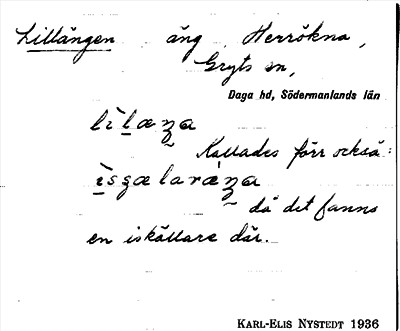 Lillängen äng, Herrökna,
Gryts sn,
Daga hd, Södermanlands län
lìlæŋa
Kallades förr också:
ìsʒælaræ̀ŋa
då det fanns
en iskällare där.
KARL-ELIS NYSTEDT 1936